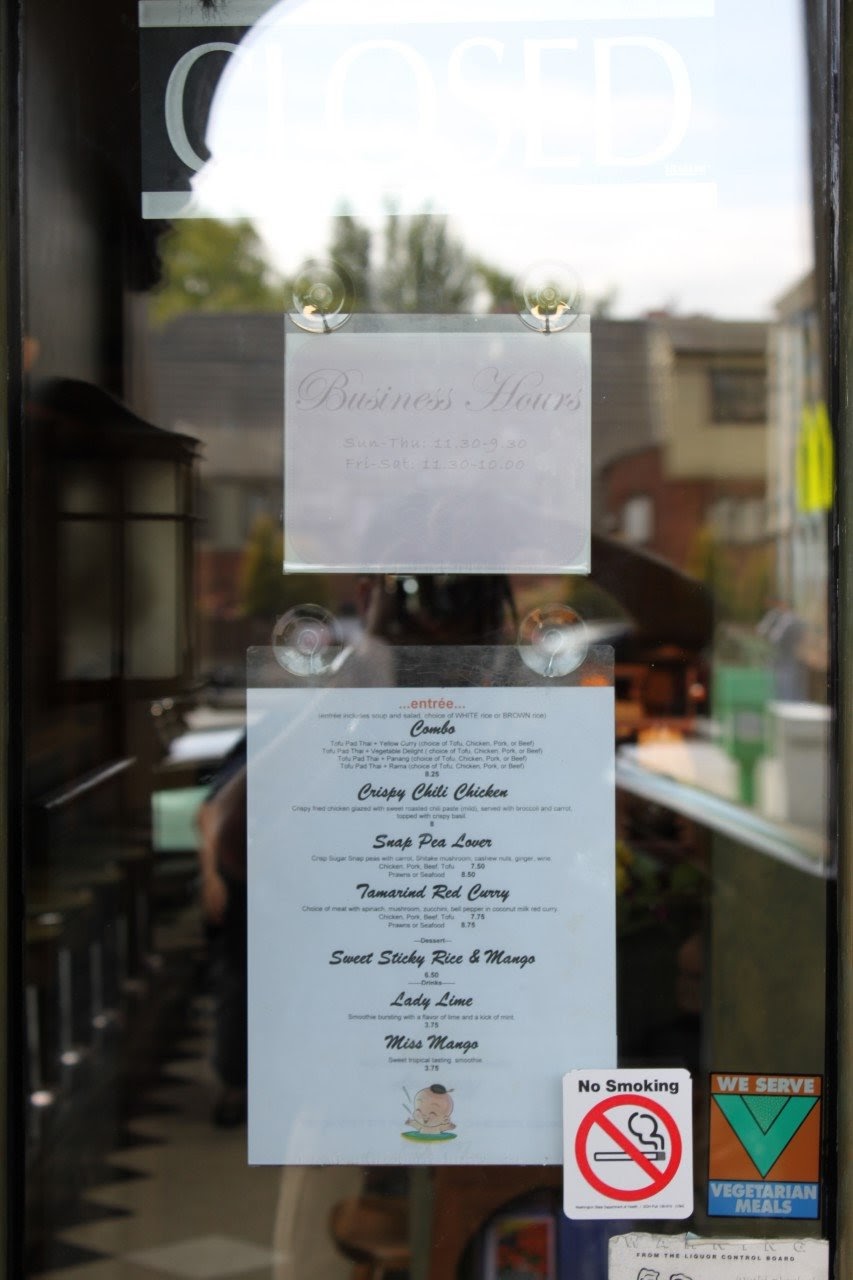 CLOSED
Business Hours
Sun-Thu: 11.30-9.30
Fri-Sat: 11.30-10.00
...entrée...
(entrée includes soup and salad, choice of WHITE rice or BROWN rice)
Combo
Tofu Pad Thai + Yellow Curry (choice of Tofu, Chicken, Pork, or Beef)
Tofu Pad Thai + Vegetable Delight ( choice of Tofu, Chicken, Pork, or Beef)
Tofu Pad Thai + Panang (choice of Tofu, Chicken, Pork, or Beef)
Tofu Pad Thai + Rama (choice of Tofu, Chicken, Pork, or Beef)
8.25
Crispy Chili Chicken
Crispy fried chicken glazed with sweet roasted chili paste (mild), served with broccoli and carrot,
topped with crispy basil.
8
Snap Pea Lover
Crisp Sugar Snap peas with carrot, Shitake mushroom, cashew nuts, ginger, wine.
Chicken, Pork, Beef, Tofu 7.50
Prawns or Seafood 8.50
Tamarind Red Curry
Choice of meat with spinach, mushroom, zucchini, bell pepper in coconut milk red curry.
Chicken, Pork, Beef, Tofu 7.75
Prawns or Seafood 8.75
---Dessert---
Sweet Sticky Rice & Mango
6.50
-----Drinks-----
Lady Lime
Smoothie bursting with a flavor of lime and a kick of mint.
3.75
Miss Mango
Sweet tropical tasting smoothie.
3.75
No Smoking
Washington State Department of Health
WE SERVE
VEGETARIAN
MEALS
WARNING
FROM THE LIQUOR CONTROL BOARD